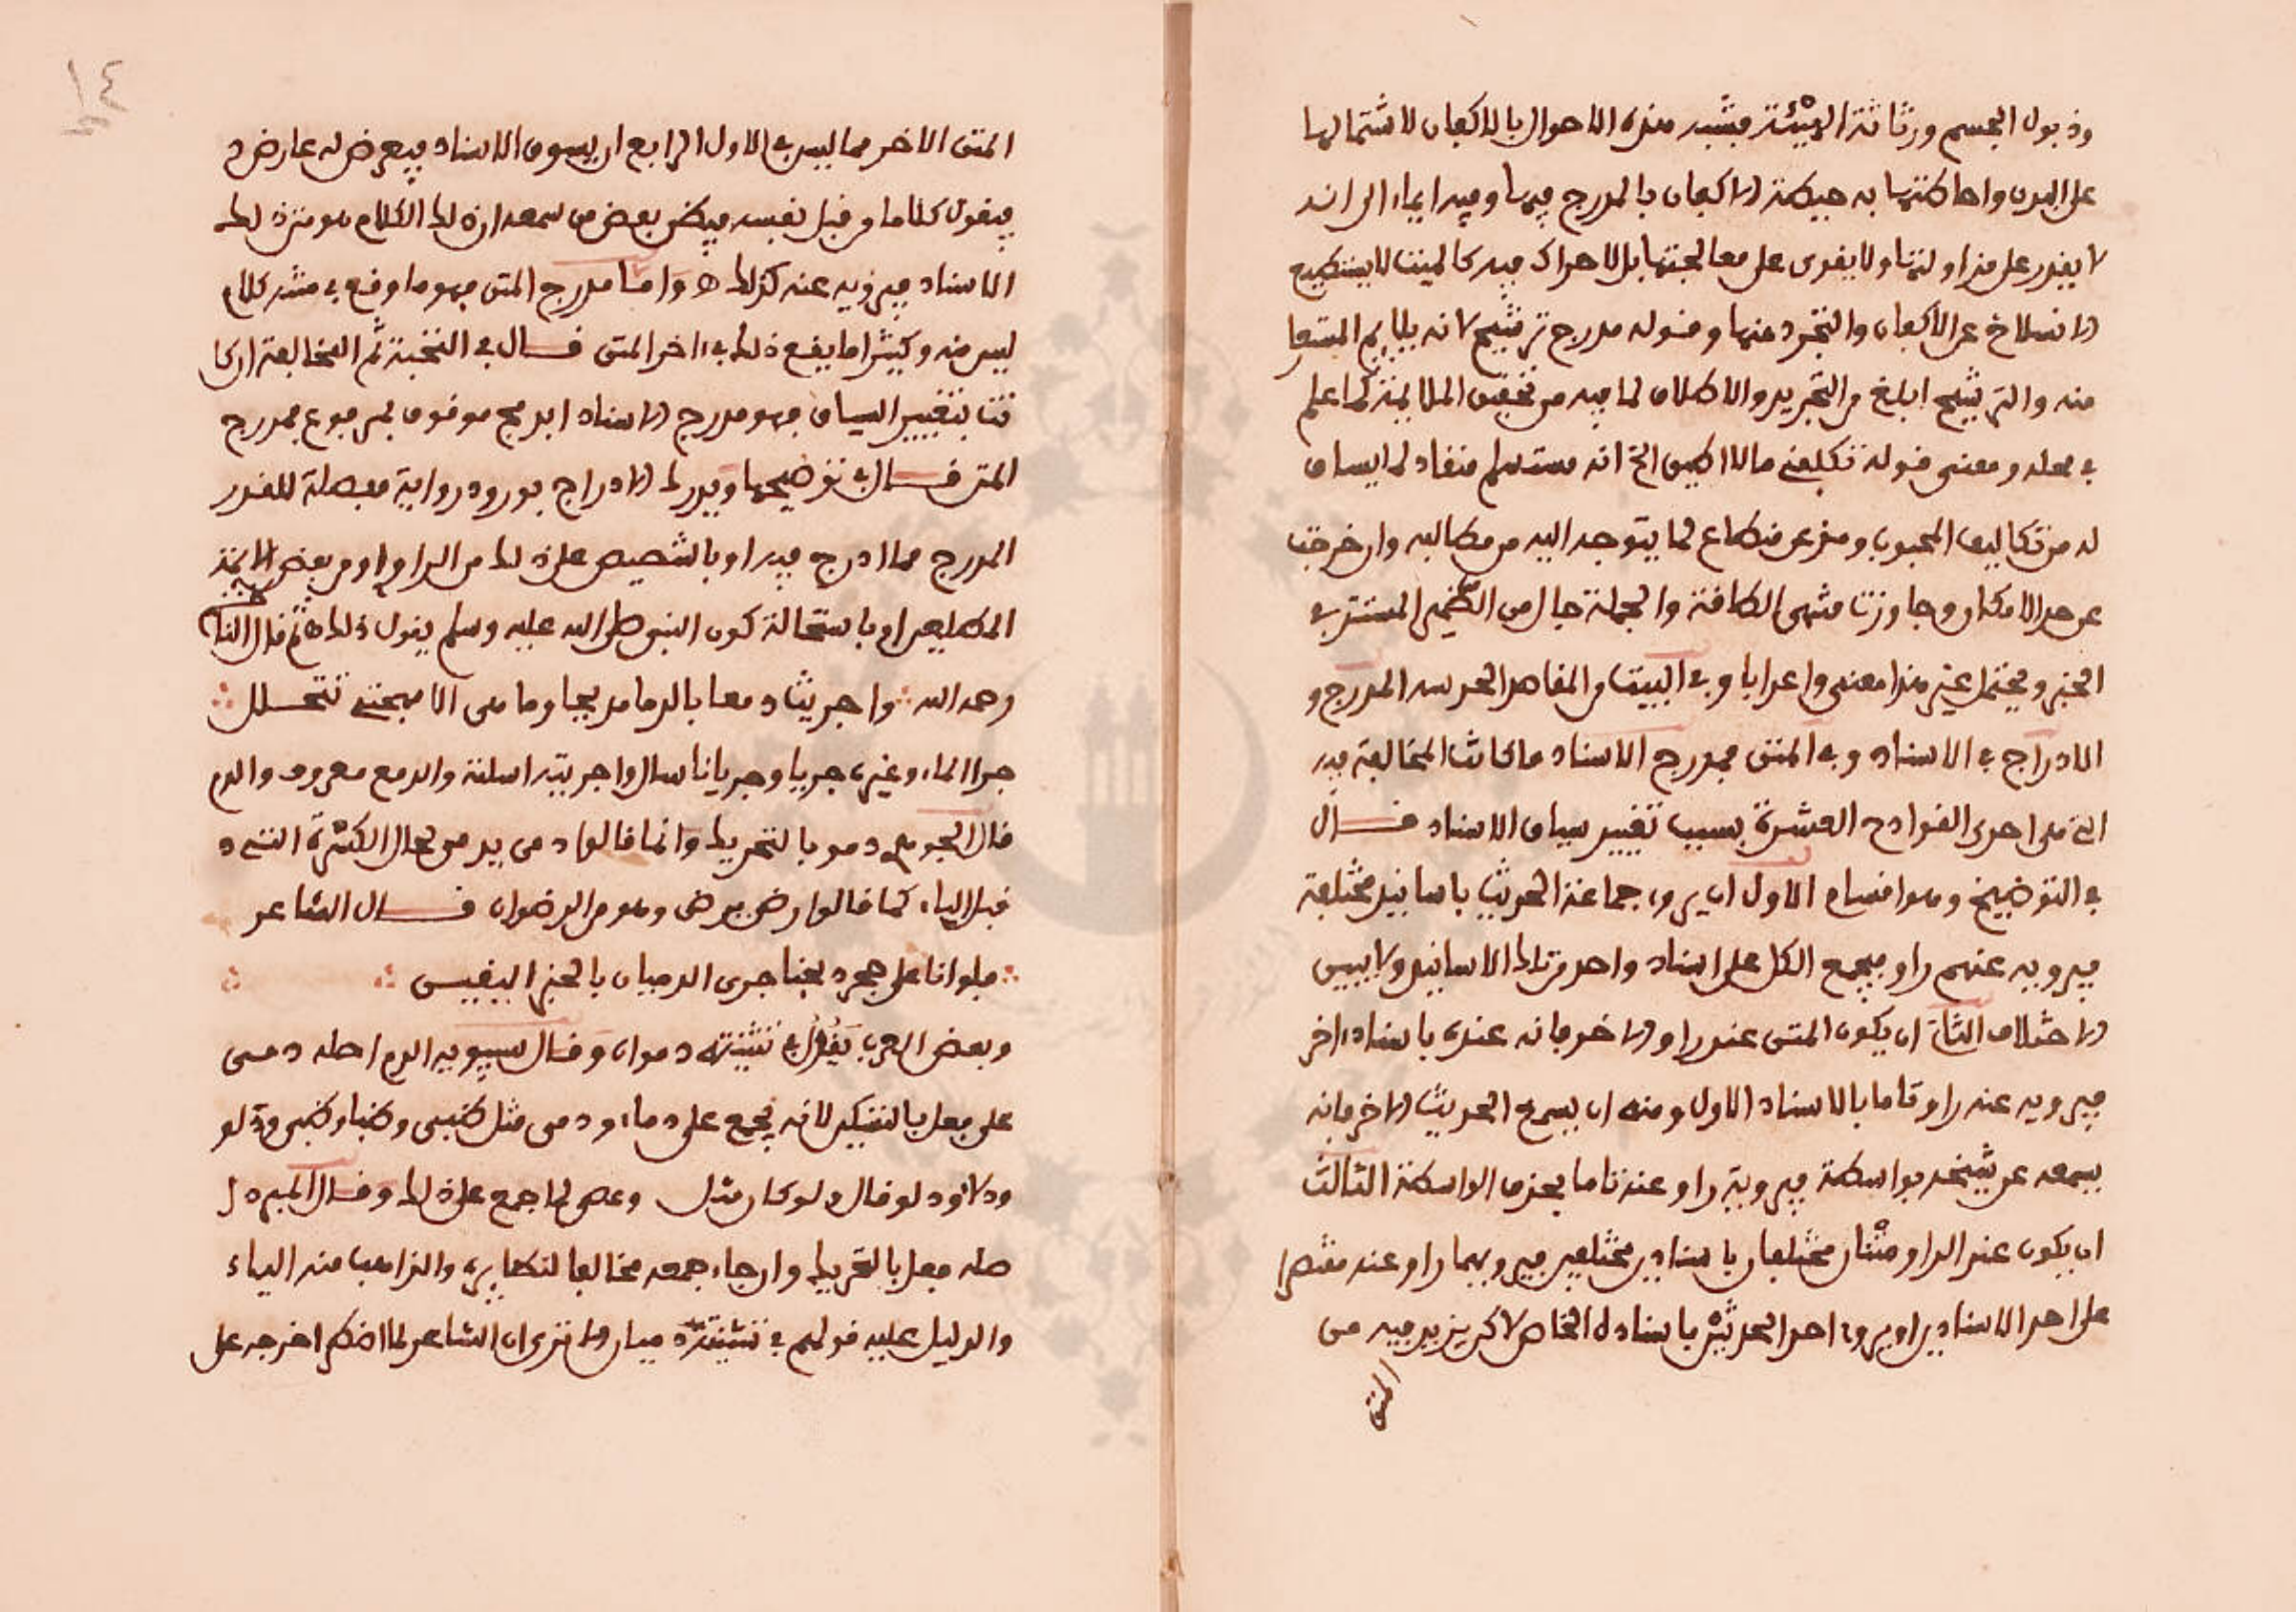 وذبول الجسم ورثاثة الهيئة فشبه هذه الاحوال بالاكفان لاشتمالها
على البدن واحاطتها به حيطة الاكفان بالمدرج فيها وفيه ايماء الى انه
لا يقدر على مزاولتها ولا يقوى على معالجتها بل لا حراك فيه كالميت لا يستطيع
الانسلاخ عن الاكفان والتجرد عنها وقوله مدرج ترشيح لانه يلايم المستعا
منه والترشيح ابلغ من التجريد والاطلاق لما فيه من تحقيق الملايمة كما علم
في محله ومعنى قوله تكلفني ما لا اطيق الخ انه مستسلم منقاد لما يساق
له من تكاليف المحبوب ومذعن منطاع لما يتوجه اليه من مطالبه وان خرجت
عن حد الامكان وجاوزت منتهى الطاقة والجملة حال من الضمير المستتر في
الخبر ويحتمل غير هذا معنى واعرابا وفي البيت من المقاصد الحديثية المدرج و
الادراج في الاسناد وفي المتن فمدرج الاسناد ما كانت المخالفة فيه
التي هي احدى القوادح العشرة بسبب تغيير سياق الاسناد قال
في التوضيح وهو اقسام الاول ان يروي جماعة الحديث باسانيد مختلفة
فيرويه عنهم راو فيجمع الكل على اسناد واحد من تلك الاسانيد ولا يبين
الاختلاف الثاني ان يكون المتن عند راو الاخر فانه عنده باسناد اخر
فيرويه عنه راو تاما بالاسناد الاول ومنه ان يسمع الحديث الاخر فانه
يسمعه عن شيخه بواسطة فيرويه راو عنه تاما بحذف الواسطة الثالث
ان يكون عند الراوي متنان مختلفان باسنادين مختلفين فيرويهما راو عنه مقتصرا
على احد الاسنادين او يروي احد الحديثين باسناده الخاص لاكن يزيد فيه من
المتن
١٤
المتن الاخر مما ليس في الاول الرابع ان يسوق الاسناد فيعرض له عارض
فيقول كلاما من قبل نفسه فيظن بعض من سمعه ان ذلك الكلام هو متن ذلك
الاسناد فيرويه عنه كذلك ه واما مدرج المتن فهو ما وقع في متنه كلام
ليس منه وكثيرا ما يقع ذلك في ءاخر المتن قال في النخبة ثم المخالفة ان كا
نت بتغيير السياق فهو مدرج الاسناد او بدمج موقوف بمرفوع فمدرج
المتن قال في توضيحها ويدرك الادراج بورود رواية مفصلة للقدر
المدرج مما ادرج فيه او بالتنصيص على ذلك من الراوي او من بعض الائمة
المطلعين او باستحالة كون النبي صلى الله عليه وسلم يقول ذلك ه ثم قال الناظم
رحمه الله ∴ واجريت دمعا بالدما مدبجا وما هي الا مهجتي تتحلل ∴
جرى الماء وغيره جريا وجريانا سال واجريته اسلته والدمع معروف والدم
قال الجوهري دمو بالتحريك وانما قالوا دمي يدمى لحال الكسرة التي
قبل الياء كما قالوا رضي يرضى وهو من الرضوان قال الشاعر
∴ فلو انا على حجر ذبحنا جرى الدميان بالخبر اليقين ∴
وبعض العرب يقول في تثنيته دموان وقال سيبويه الدم اصله دمي
على فعل بالتسكين لانه يجمع على دماء ودمي مثل ظبي وظباء وظبي ودلو
ودلاء ودلي قال ولو كان مثل وعصى لما جمع على ذلك وقال المبرد
اصله فعل بالتحريك وان جاء جمعه مخالفا لنظايره والذاهب منه الياء
والدليل عليه قولهم في تثنيته دميان الا ترى ان الشاعر لما اضطر اخرجه على